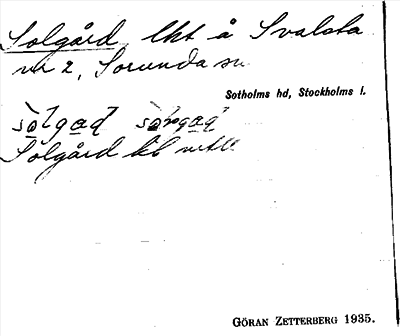 Solgård lht å Svalsta
nr 2, Sorunda sn
Sotholms hd, Stockholms l.
Solgård kb
GÖRAN ZETTERBERG 1935.